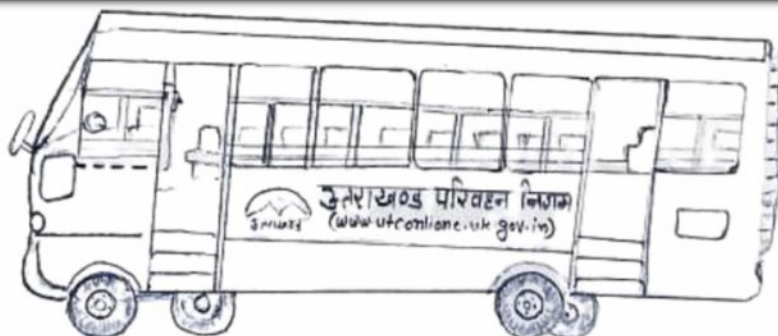 उत्तराखण्ड परिवहन निगम
(www.utconlione.uk.gov.in)